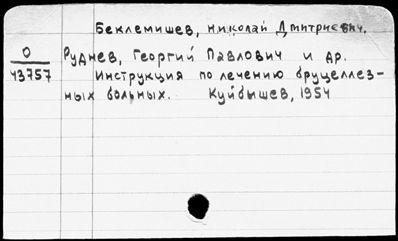 Беклемишев, Николай Дмитриевич.
О Руднев, Георгий Павлович и др.
43757 Инструкция по лечению бруцеллез-
ных больных. Куйбышев, 1954